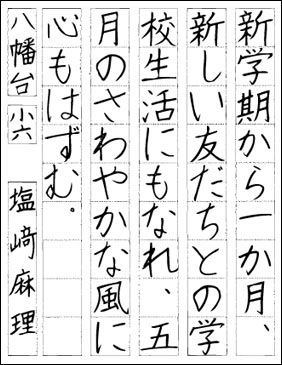 新学期から一か月、
新しい友だちとの学
校生活にもなれ、五
月のさわやかな風に
心もはずむ。
八幡台小六 塩﨑麻理